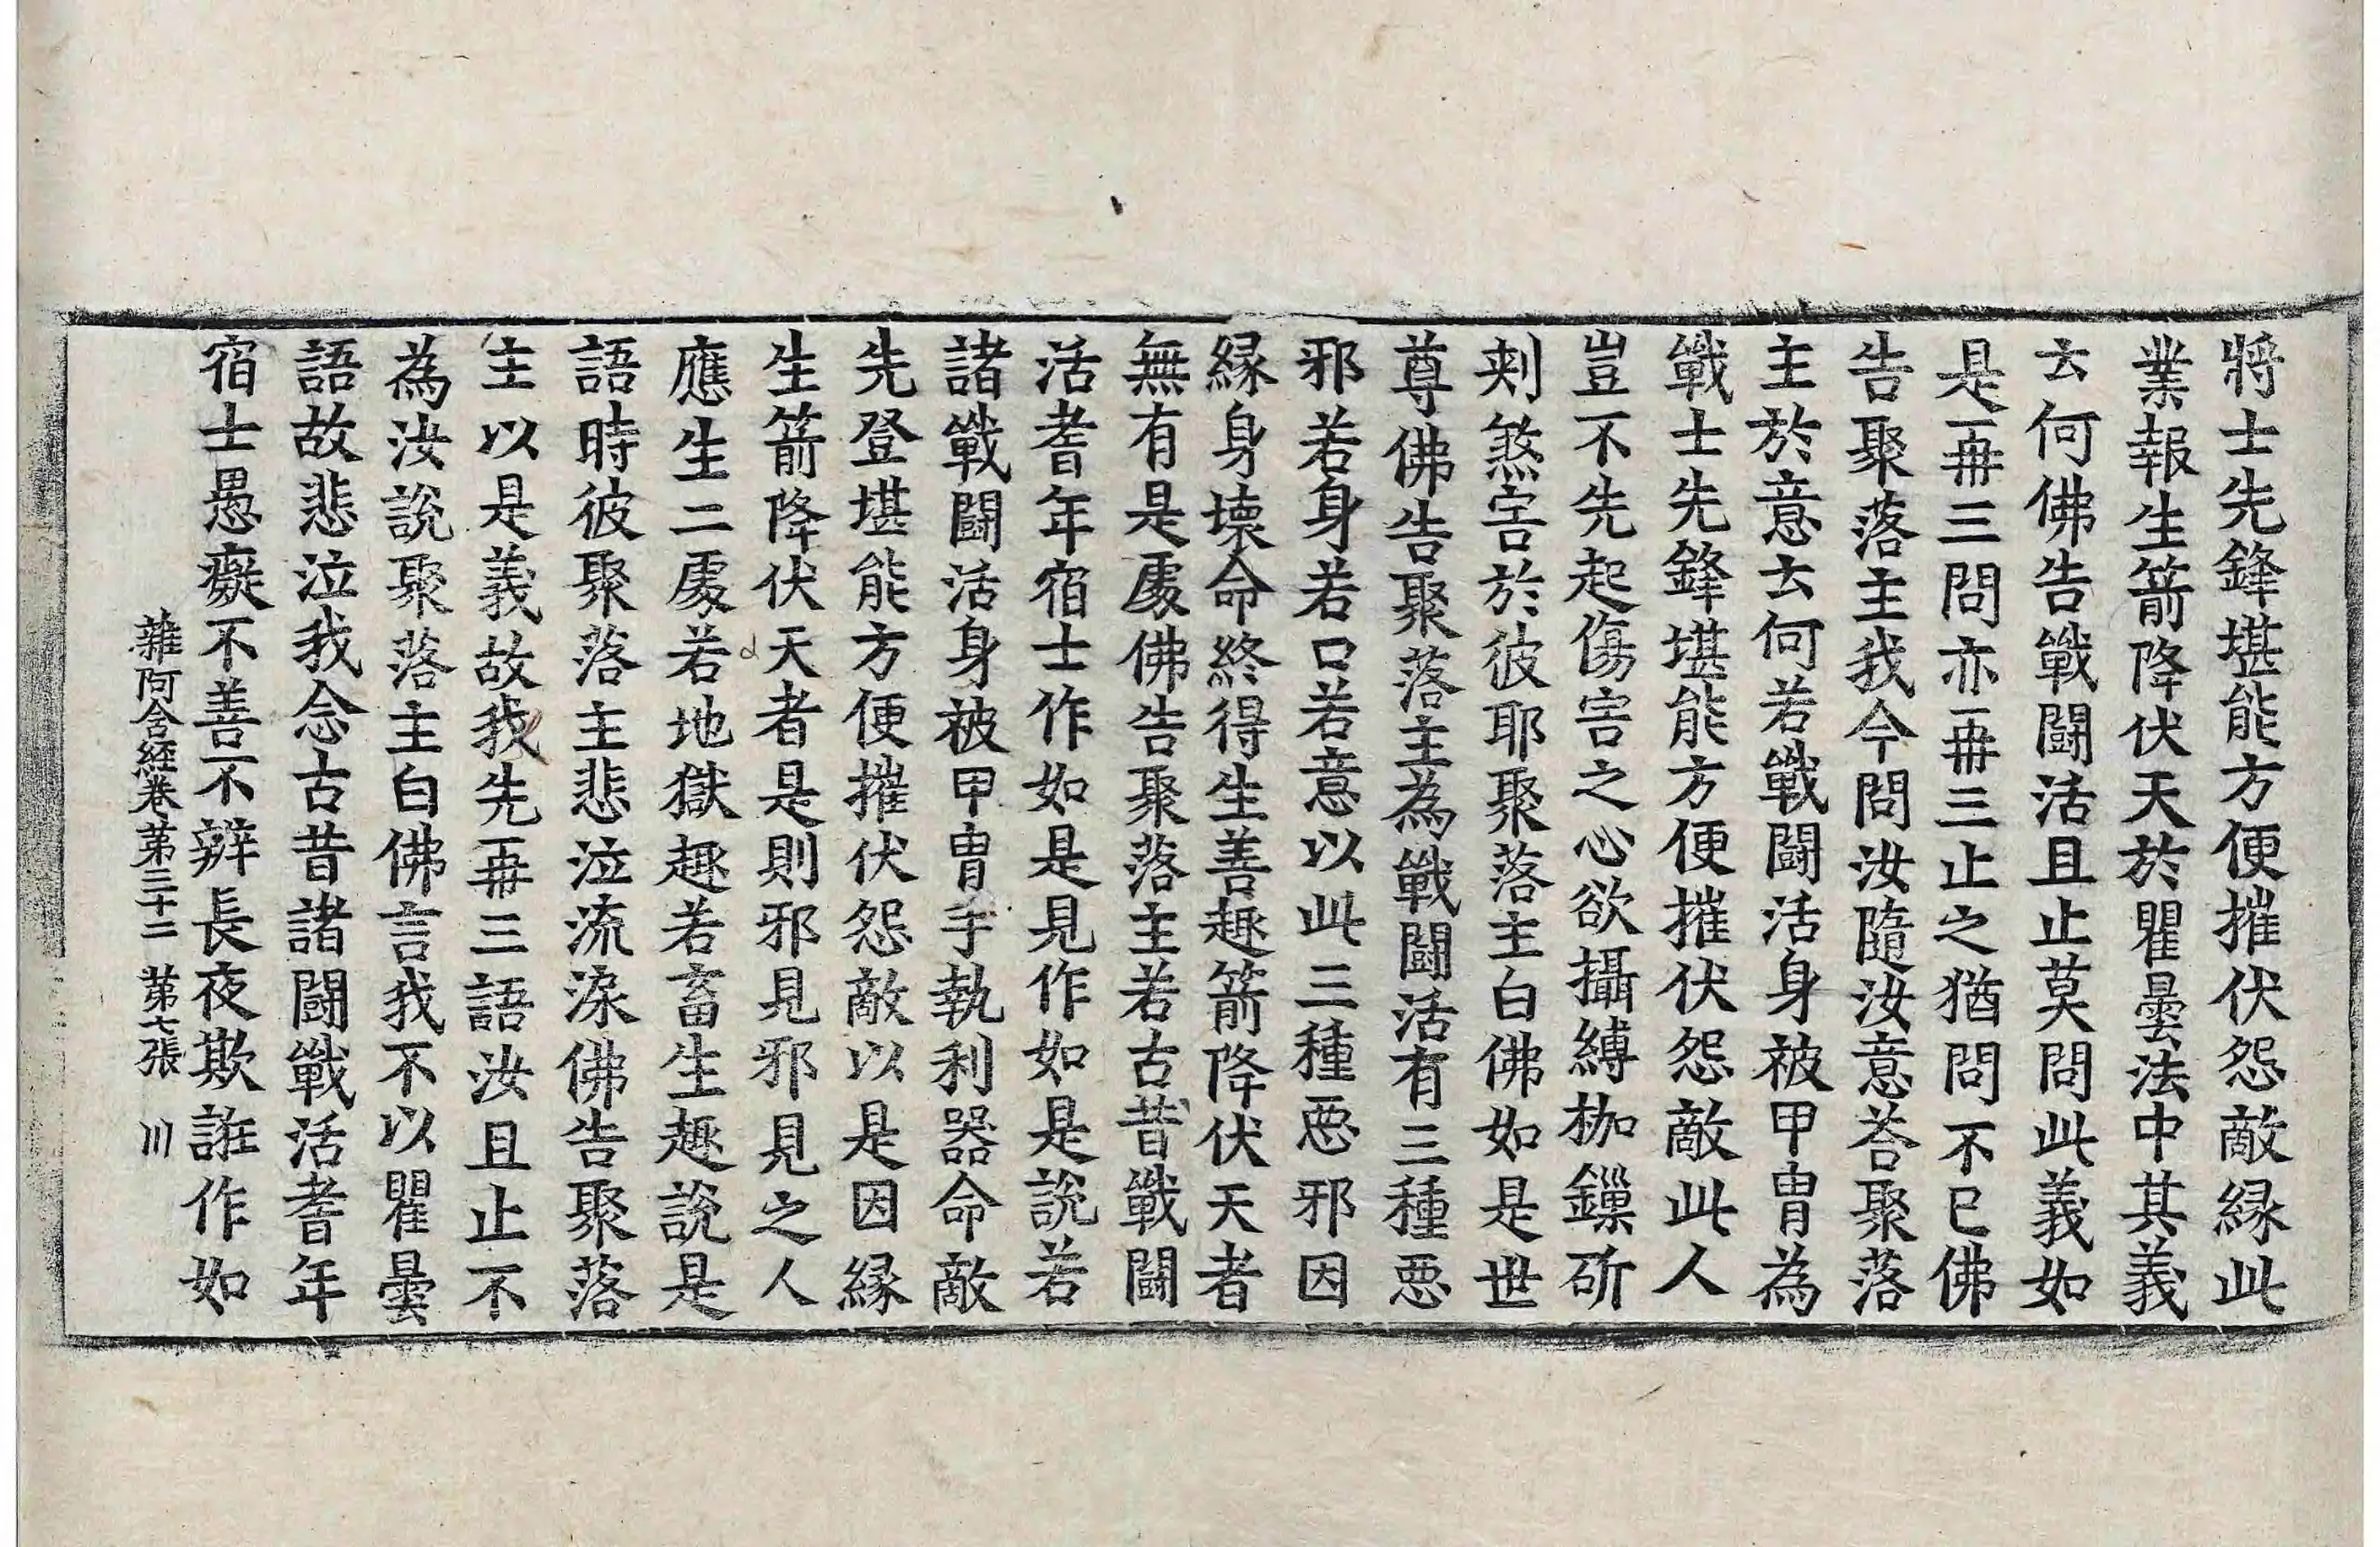 將士先鋒堪能方便摧伏怨敵緣此
業報生箭降伏天於瞿曇法中其義
云何佛告戰鬪活且止莫問此義如
是再三問亦再三止之猶問不已佛
告聚落主我今問汝隨汝意荅聚落
主於意云何若戰鬪活身被甲冑為
戰士先鋒堪能方便摧伏怨敵此人
豈不先起傷害之心欲攝縛枷鏁斫
刾煞害於彼耶聚落主白佛如是世
尊佛告聚落主為戰鬪活有三種惡
邪若身若口若意以此三種惡邪因
緣身壞命終得生善趣箭降伏天者
無有是處佛告聚落主若古昔戰鬪
活耆年宿士作如是見作如是說若
諸戰鬪活身被甲冑手執利器命敵
先登堪能方便摧伏怨敵以是因緣
生箭降伏天者是則邪見邪見之人
應生二處若地獄趣若畜生趣說是
語時彼聚落主悲泣流淚佛告聚落
主以是義故我先再三語汝且止不
為汝說聚落主白佛言我不以瞿曇
語故悲泣我念古昔諸鬪戰活耆年
宿士愚癡不善不辯長夜欺誑作如
雜阿含經卷第三十二 第七張 川